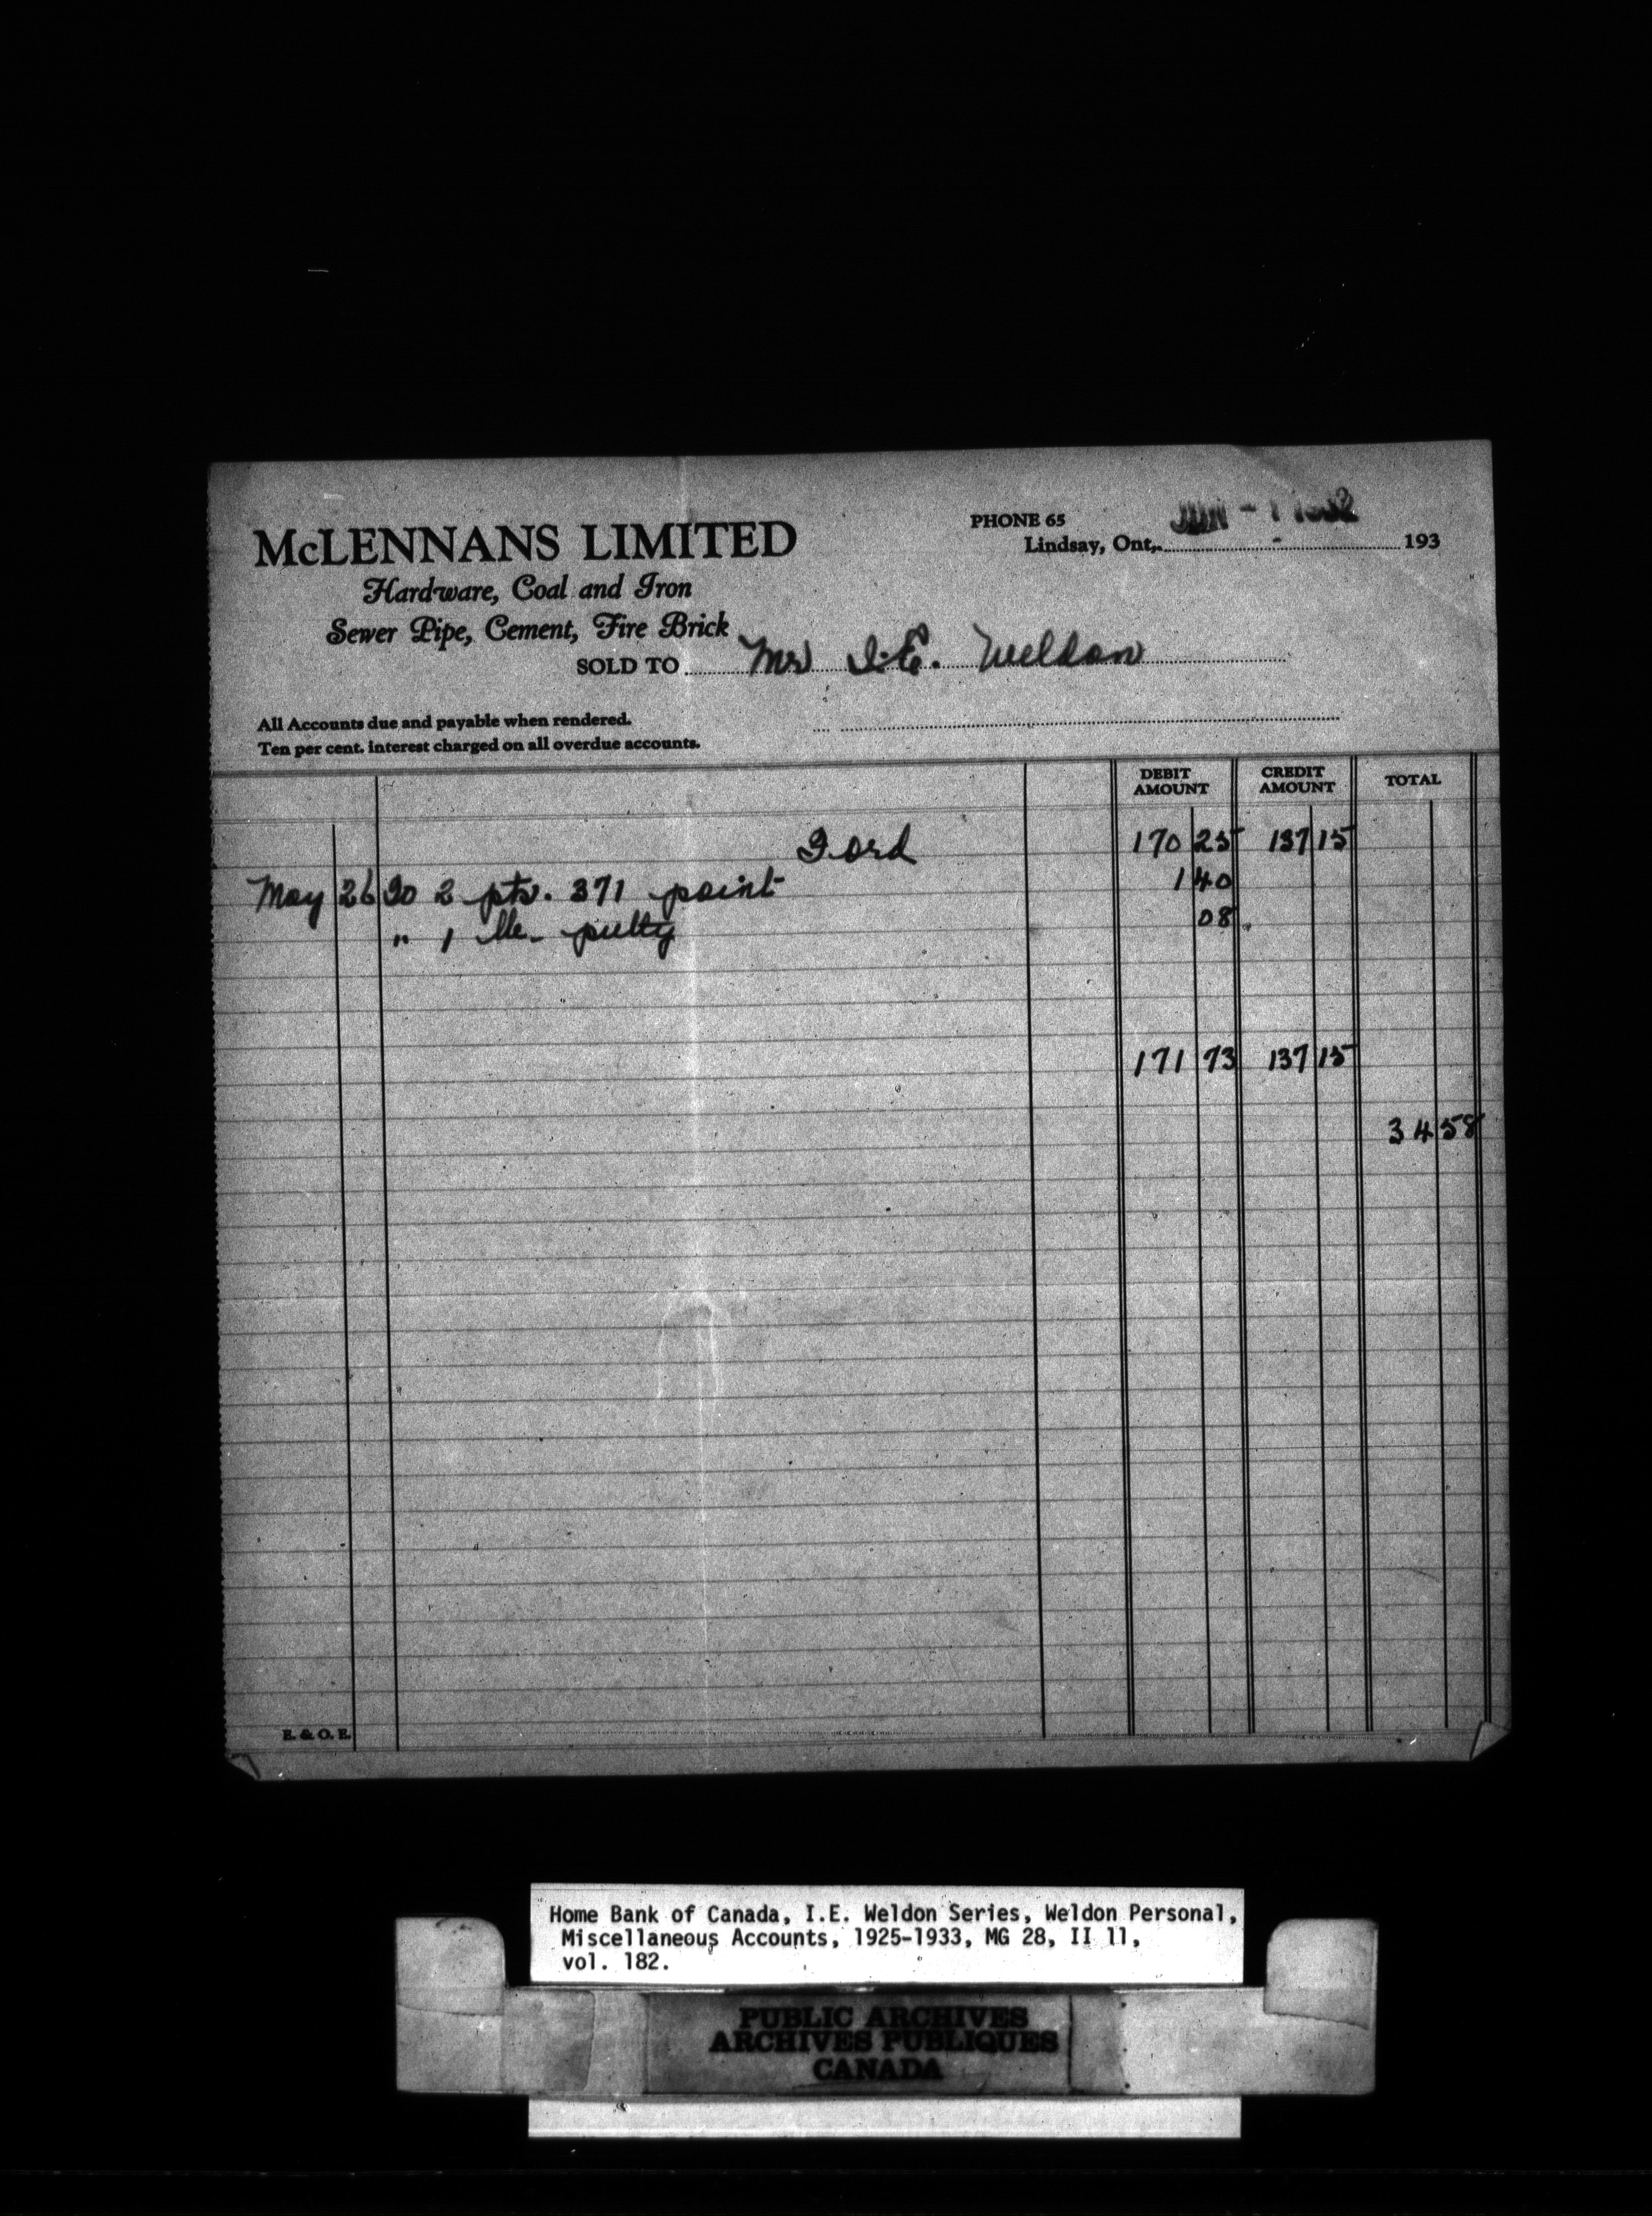 McLENNANS LIMITED
Hardware, Coal and Iron
Sewer Pipe, Cement, Fire Brick
PHONE 65
JUN - 1 1932
Lindsay, Ont,. 193
SOLD TO Mr I.E. Weldon
All Accounts due and payable when rendered.
Ten per cent. interest charged on all overdue accounts.
DEBIT AMOUNT CREDIT AMOUNT TOTAL
Ford 170 25 137 15
May 26 To 2 pts. 371 paint 1 40
" 1 lb. putty 08
171 73 137 15
34 58
E. & O. E.
Home Bank of Canada, I.E. Weldon Series, Weldon Personal,
Miscellaneous Accounts, 1925-1933, MG 28, II 11,
vol. 182.
PUBLIC ARCHIVES
ARCHIVES PUBLIQUES
CANADA